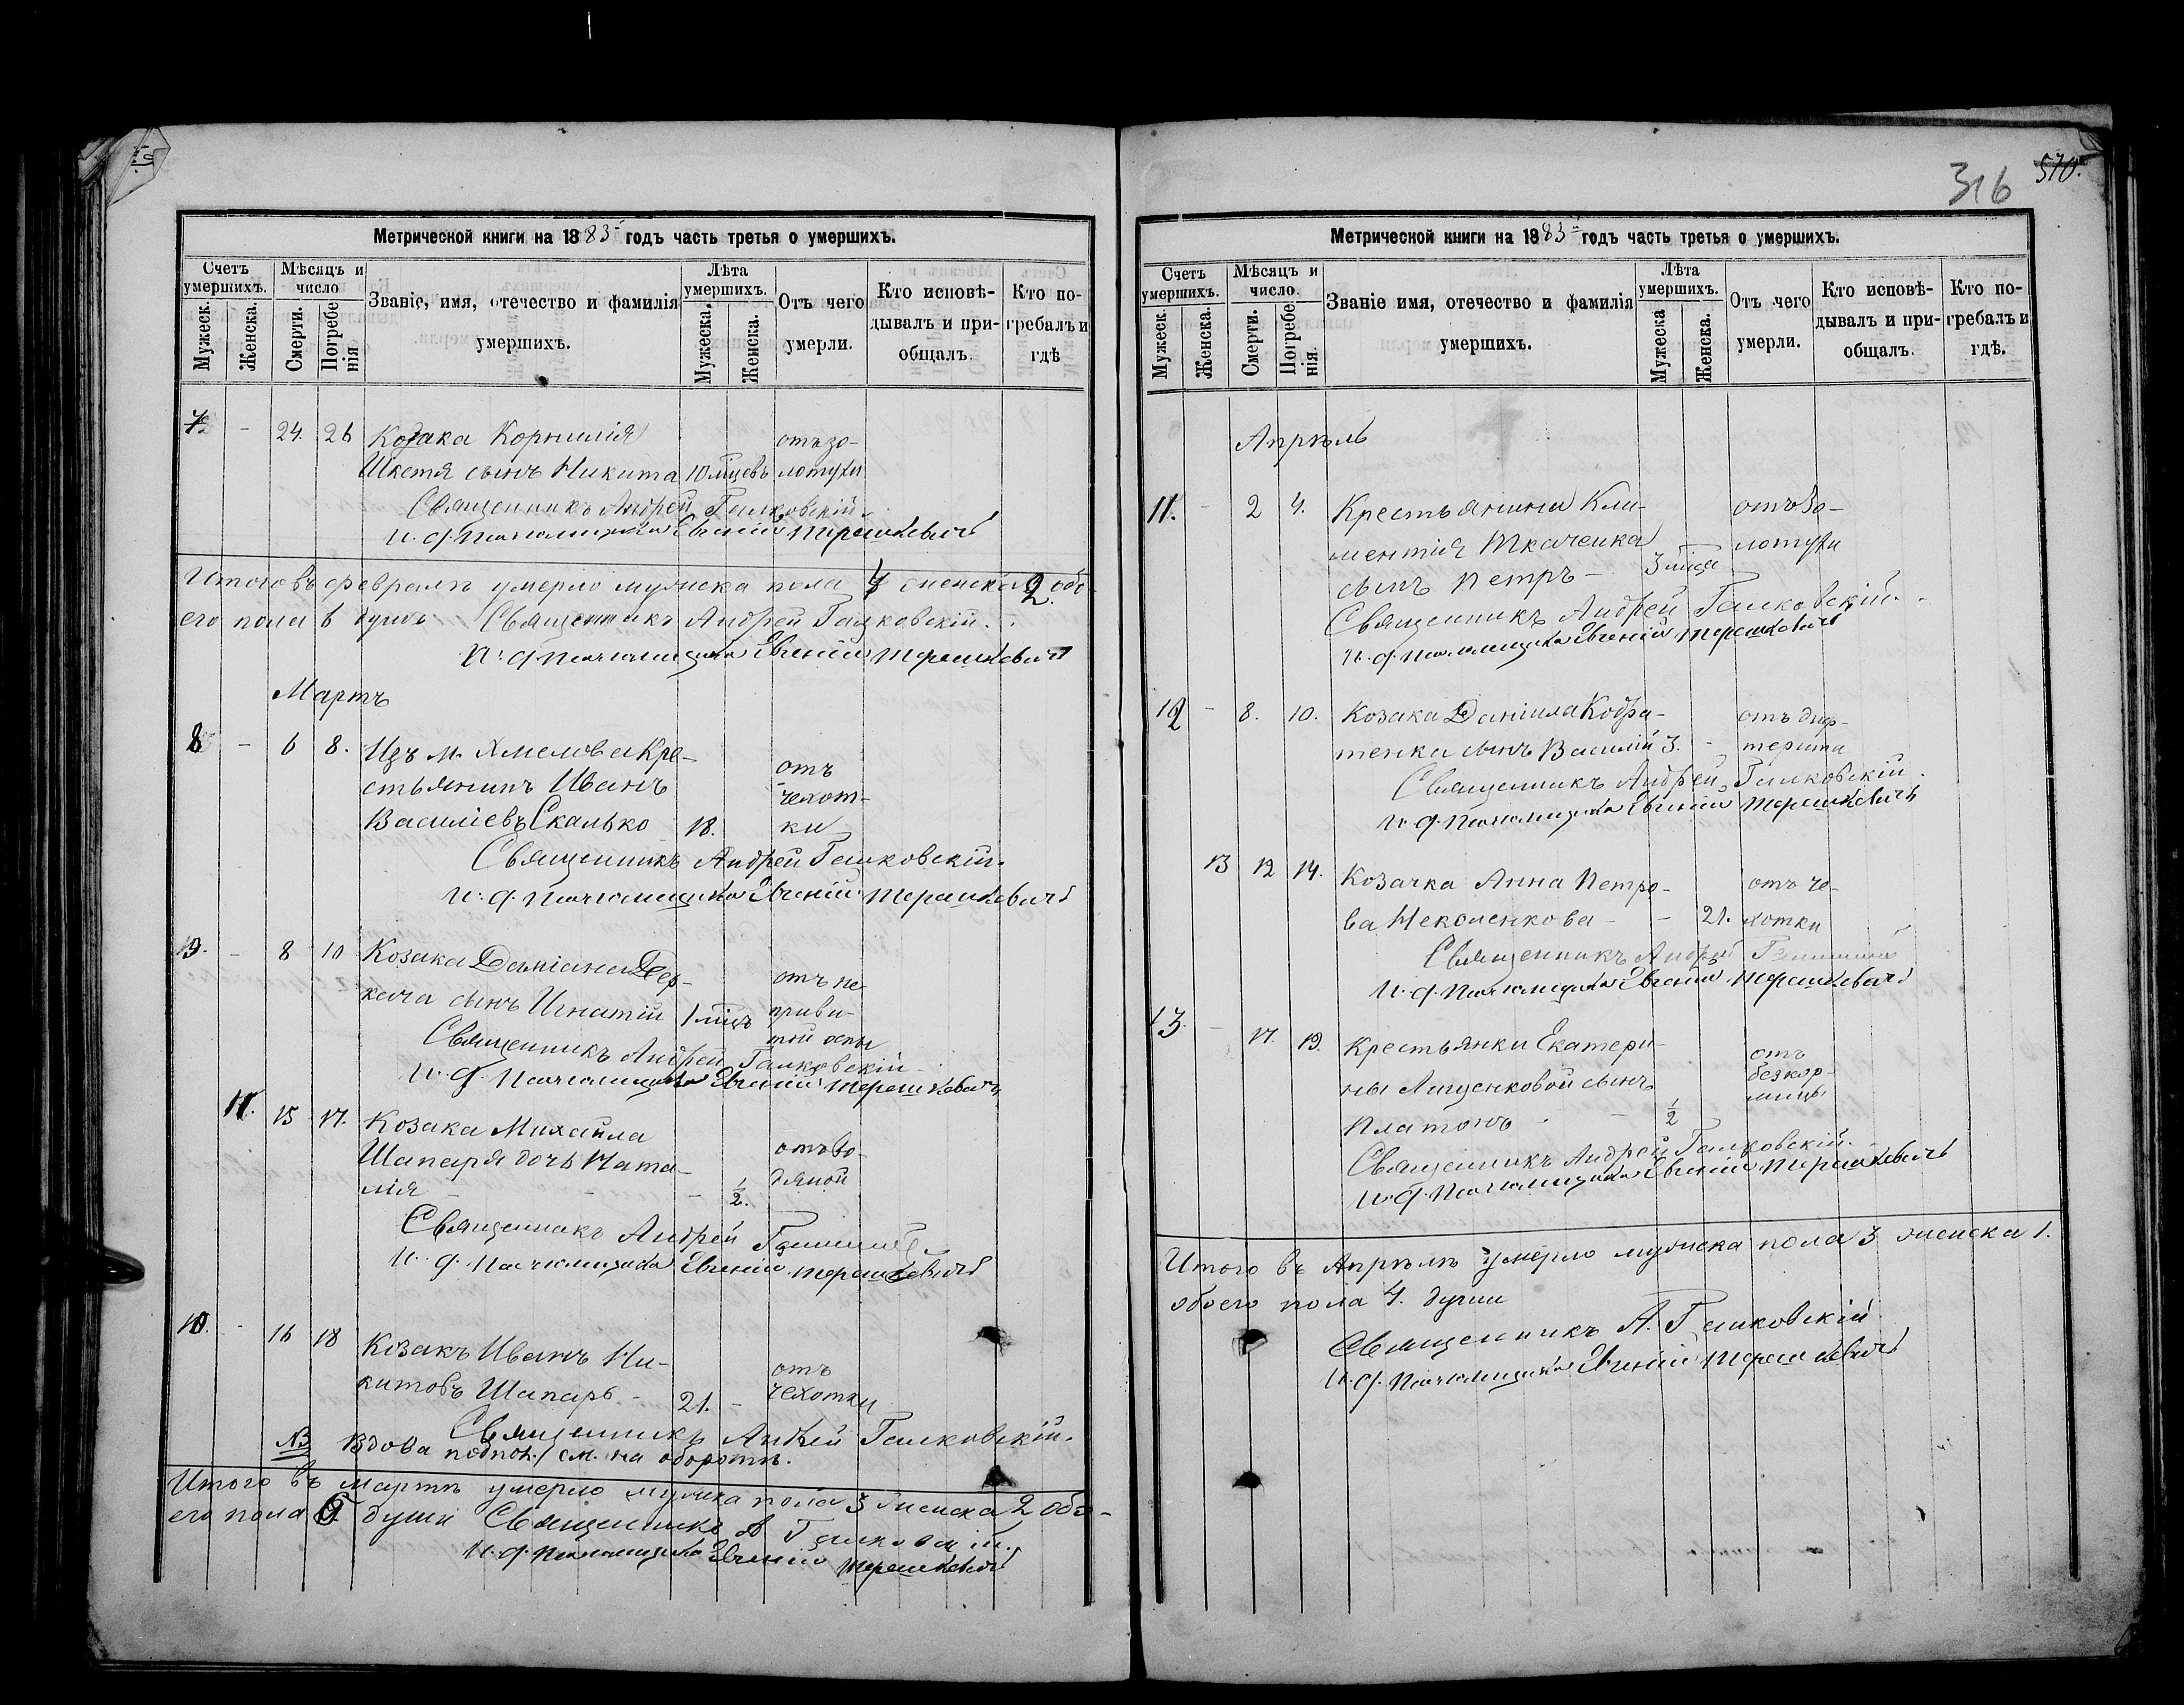 Метрической книги на 1883 годъ часть третья о умершихъ.
Счетъ умершихъ.
Мужеск.
Женска.
Мѣсяцъ и число
Смерти.
Погребенія
Званіе, имя, отечество и фамилія умершихъ.
Лѣта умершихъ.
Мужеска.
Женска.
Отъ чего умерли.
Кто исповѣдывалъ и пріобщалъ.
Кто погребалъ и гдѣ
7 - 24. 26 Козака Корнилія отъ зо-
сынъ Никита 10 мцевъ лотухи
Священникъ Андрей Галковскій.
и. д. Псаломщика Евгеній Терешкевичъ
Итого въ февралѣ умерло мужеска пола 4 женска 2. обо
его пола 6 душъ Священникъ Андрей Галковскій.
и. д. Псаломщика Евгеній Терешкевичъ
Мартъ
8 - 6 8. Изъ м. Хмелова Кре-
стьянинъ Иванъ отъ
чехот-
Василіевъ Скалько 18. ки
Священникъ Андрей Галковскій.
и. д. Псаломщика Евгеній Терешкевичъ
9. - 8 10 Козака Даміана Дер-
кача сынъ Игнатій 1 мцъ отъ не
приви-
той оспы
Священникъ Андрей Галковскій
и. д. Псаломщика Евгеній Терешкевичъ
15 17. Козака Михаила
Шапаря дочь Ната- отъ во-
лія - - - 1/2. дяной
Священникъ Андрей
и. д. Псаломщика Евгеній Терешкевичъ
10. - 16 18 Козакъ Иванъ Ни-
китовъ Шапарь - 21. - отъ
чехотки
Священникъ Андрей Галковскій.
NB Вдова подпол./ см. на оборотѣ.
Итого въ мартѣ умерло мужска пола 3 женска 2 обо-
его пола души Священникъ А Галковскій.
и. д. Псаломщика Евгеній Терешкевичъ
316 570.
Метрической книги на 1883 годъ часть третья о умершихъ.
Счетъ умершихъ.
Мужеск.
Женска.
Мѣсяцъ и число.
Смерти.
Погребенія.
Званіе имя, отечество и фамилія умершихъ.
Лѣта умершихъ.
Мужеска
Женска.
Отъ чего умерли.
Кто исповѣдывалъ и пріобщалъ.
Кто погребалъ и гдѣ.
Апрѣль
11. - 2 4. Крестьянина Кли- отъ зо-
ментія Ткаченка лотухи
сынъ Петръ - 3 мца
Священникъ Андрей Галковскій.
и. д. Псаломщика Евгеній Терешкевичъ
12 - 8. 10. Козака Даніила Кодра- отъ диф-
тенка сынъ Василій 3. - терита
Священникъ Андрей Галковскій.
и. д. Псаломщика Евгеній Терешкевичъ
13 12 14. Козачка Анна Петро- отъ че-
ва - - 21. хотки
Священникъ Андрей
и. д. Псаломщика Евгеній Терешкевичъ
13. - 17. 19. Крестьянки Екатери-
ны Лященковой сынъ отъ
безкор-
мицы
Платонъ - - 1/2
Священникъ Андрей Галковскій.
и. д. Псаломщика Евгеній Терешкевичъ
Итого въ Апрѣлѣ умерло мужеска пола 3 женска 1.
обоего пола 4. души
Священникъ А. Галковскій
и. д. Псаломщика Евгеній Терешкевичъ